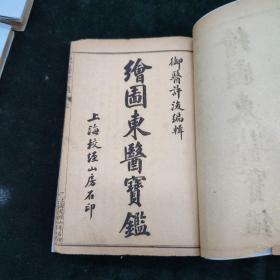 御醫許浚編輯
繪圖東醫寶鑑
上海校經山房石印